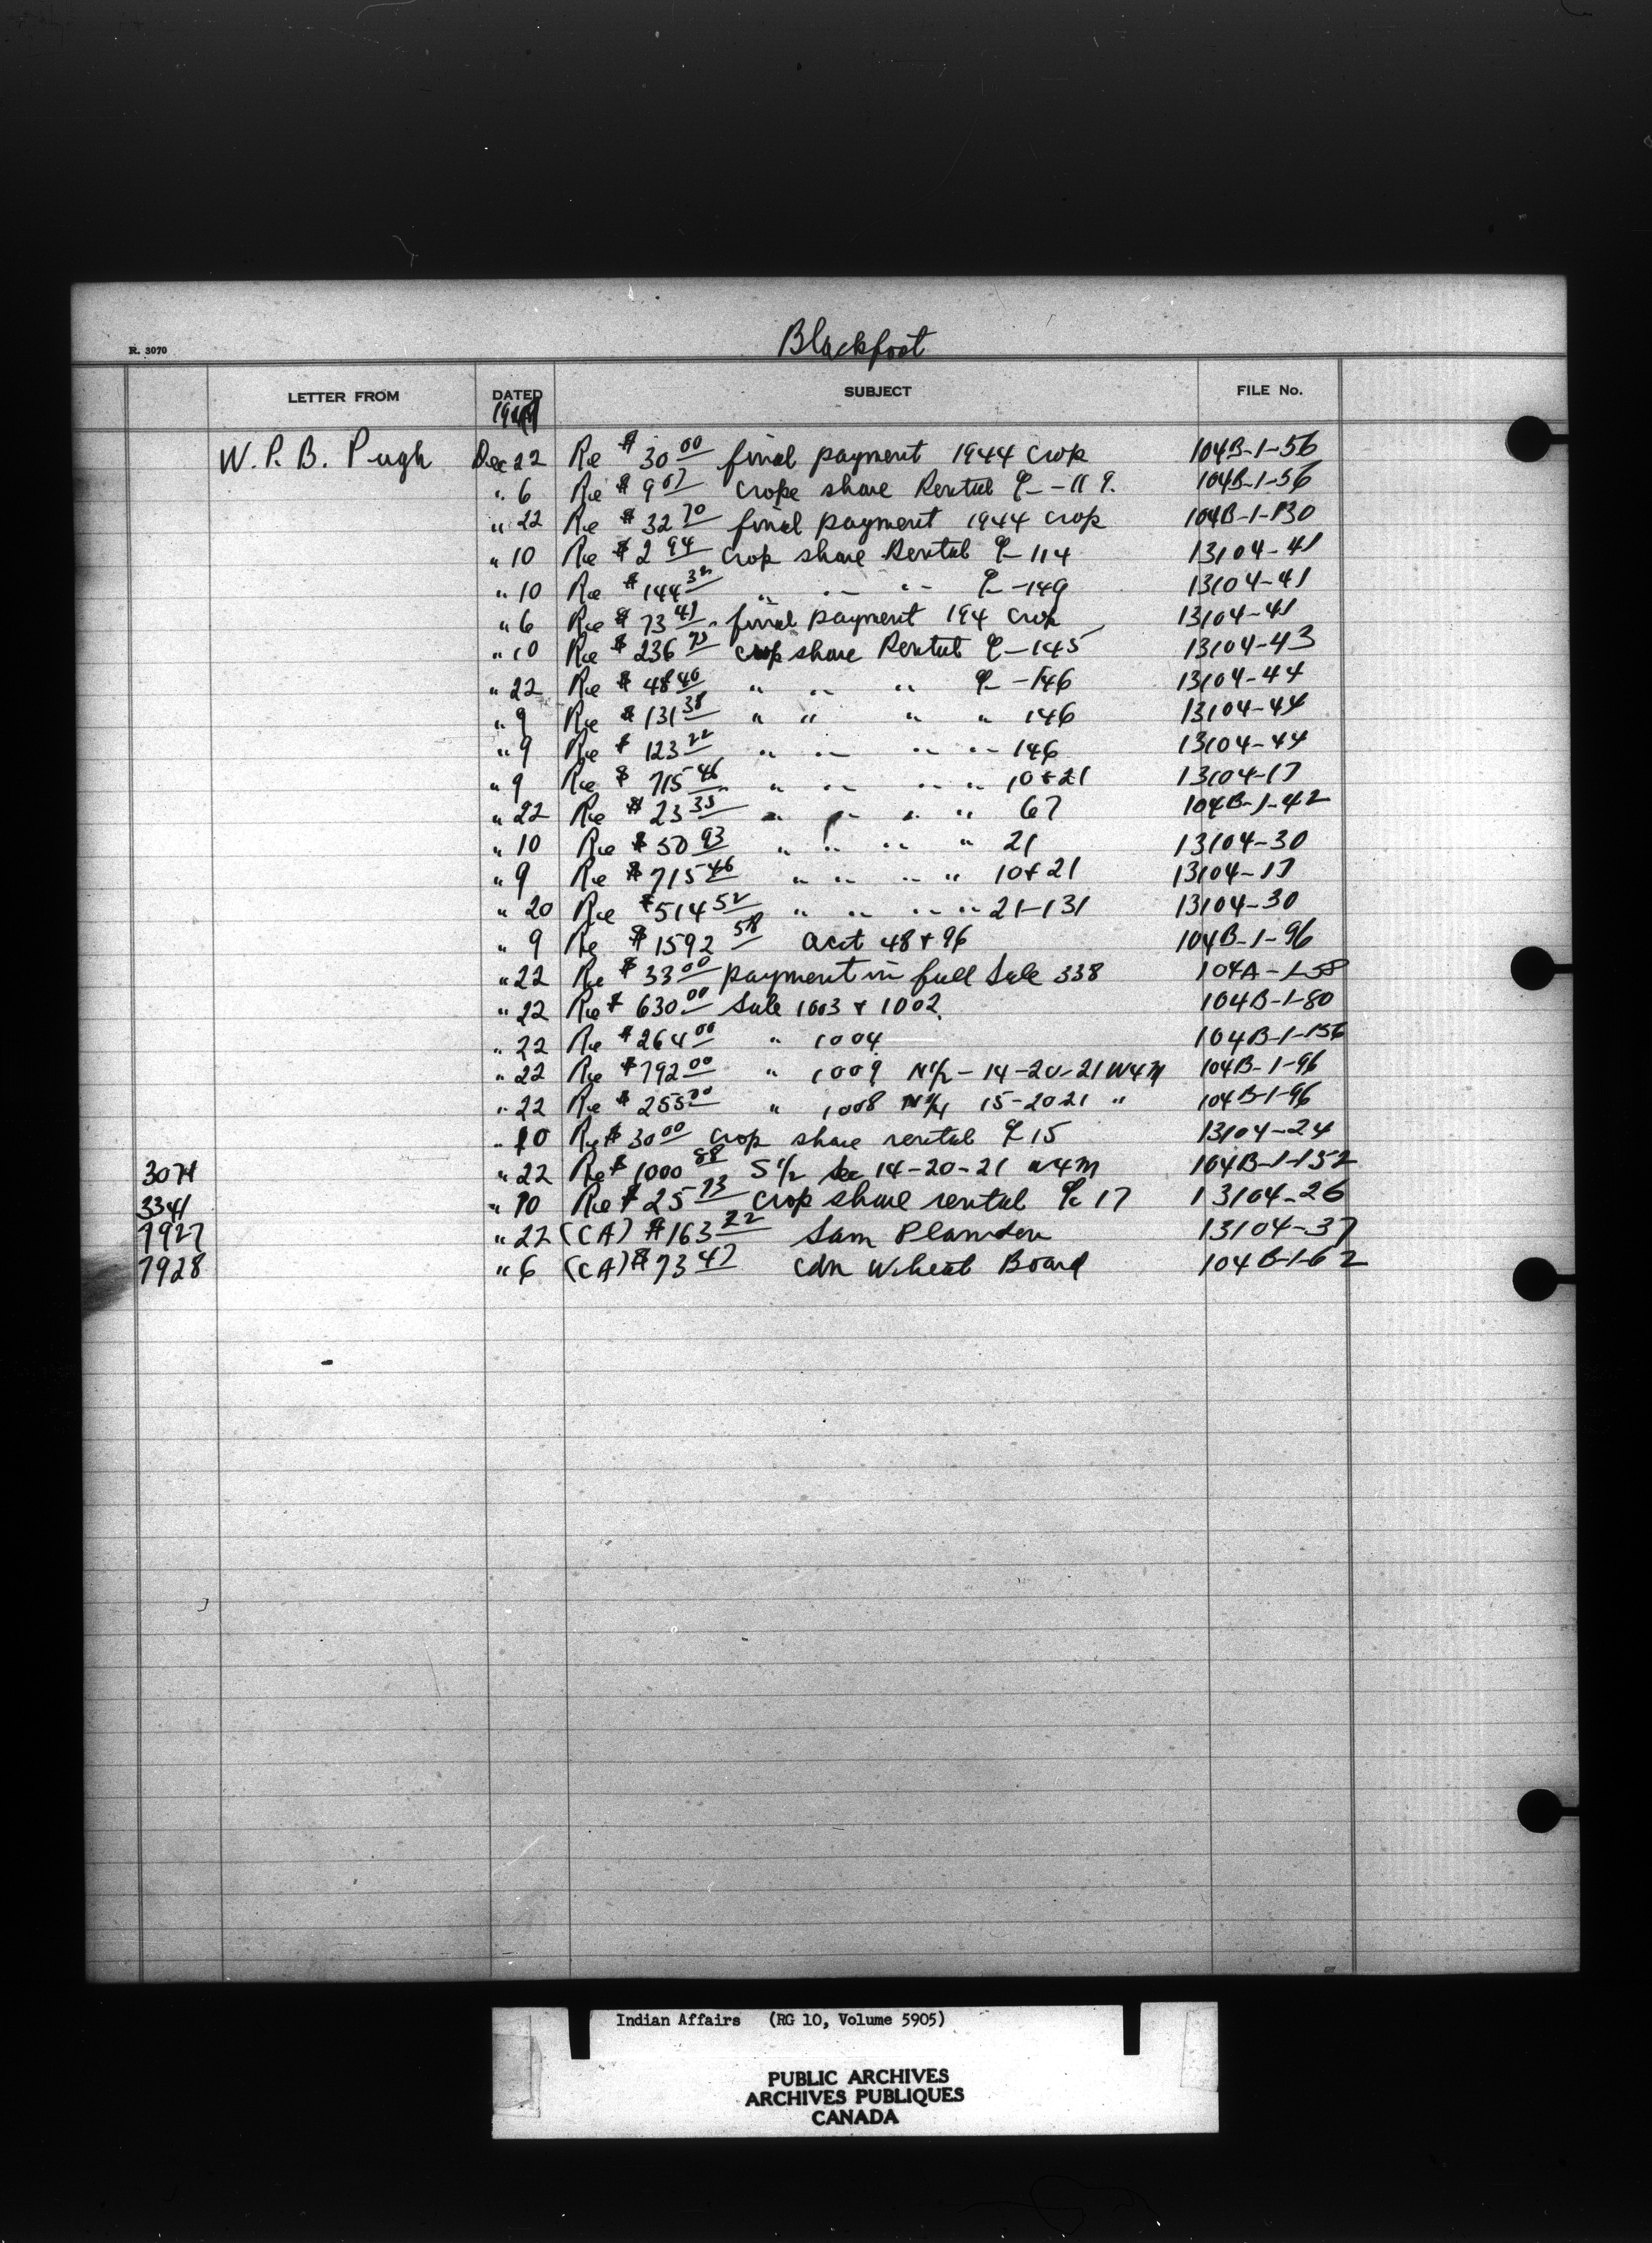 Blackfoot
R. 3070
LETTER FROM DATED SUBJECT FILE No.
W. P. B. Pugh Dec 22 Re $30 00 final payment 1944 crop 104B-1-56
" 6 Re $9 07 crope share Rental - 119. 104B-1-56
" 22 Re $32 70 final payment 1944 crop 104B-1-130
" 10 Re $2 94 crop share Rental - 114 13104-41
" 10 Re $144 32 " " " - 149 13104-41
" 6 Re $73 47 final payment 194 crop 13104-41
" 10 Re $236 crop share Rental - 145 13104-43
" 22 Re $48 40 " " " - 146 13104-44
" 9 Re $131 38 " " " " 146 13104-44
" 9 Re $123 22 " " " " 146 13104-44
" 9 Re $715 46 " " " " 10 & 21 13104-17
" 22 Re $23 35 " " " " 67 104B-1-42
" 10 Re $50 93 " " " " 21 13104-30
" 9 Re $715 46 " " " " 10 & 21 13104-17
" 20 Re $514 52 " " " " 21-131 13104-30
" 9 Re $1592 58 acct 48 & 96 104B-1-96
" 22 Re $33 00 payment in full Sale 338 104A-1-58
" 22 Re $630 00 Sale 1003 & 1002. 104B-1-80
" 22 Re $264 00 " 1004 104B-1-156
" 22 Re $792 00 " 1009 N½ - 14-20-21 W4M 104B-1-96
" 22 Re $255 00 " 1008 N½ 15-20 21 " 104B-1-96
" 10 Re $30 00 crop share rental 15 13104-24
3074 " 22 Re $1000 88 S½ Sec 14-20-21 W4M 104B-1-152
3341 " 10 Re $25 73 crop share rental 17 13104-26
7927 " 22 (CA) $163 22 Sam Plamdon 13104-37
7928 " 6 (CA) $73 47 Cdn Wheat Board 104B-1-62
Indian Affairs (RG 10, Volume 5905)
PUBLIC ARCHIVES
ARCHIVES PUBLIQUES
CANADA